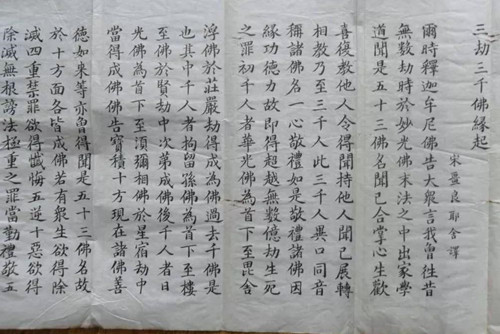 三劫三千佛緣起
宋畺良耶舍譯
爾時釋迦牟尼佛告大衆言我曾往昔
無數劫時於妙光佛末法之中出家學
道聞是五十三佛名聞已合掌心生歡
喜復教他人令得聞持他人聞已展轉
相教乃至三千人此三千人異口同音
稱諸佛名一心敬禮如是敬禮諸佛因
緣功德力故即得超越無數億劫生死
之罪初千人者華光佛為首下至毘舍
浮佛於莊嚴劫得成為佛過去千佛是
也其中千人者拘留孫佛為首下至樓
至佛於賢劫中次第成佛後千人者日
光佛為首下至須彌相佛於星宿劫中
當得成佛佛告寶積十方現在諸佛善
德如來等亦曾得聞是五十三佛名故
於十方面各皆成佛若有衆生欲得除
滅四重禁罪欲得懺悔五逆十惡欲得
除滅無根謗法極重之罪當勤禮敬五